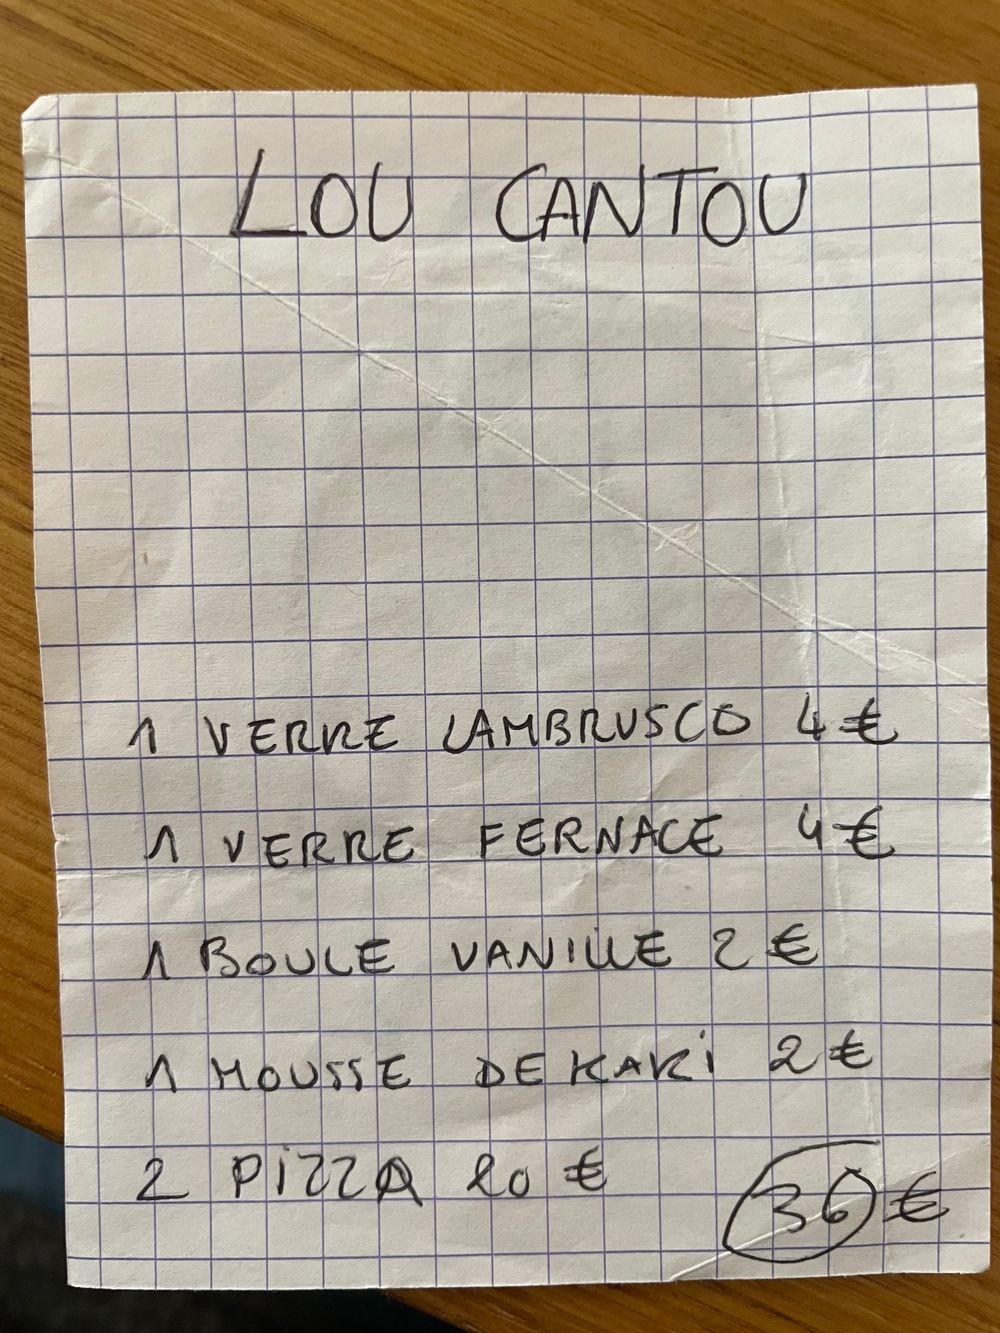 LOU CANTOU
1 VERRE LAMBRUSCO 4 €
1 VERRE FERNACE 4 €
1 BOULE VANILLE 2 €
1 MOUSSE DE KAKi 2 €
2 PiZZA 20 €
36 €